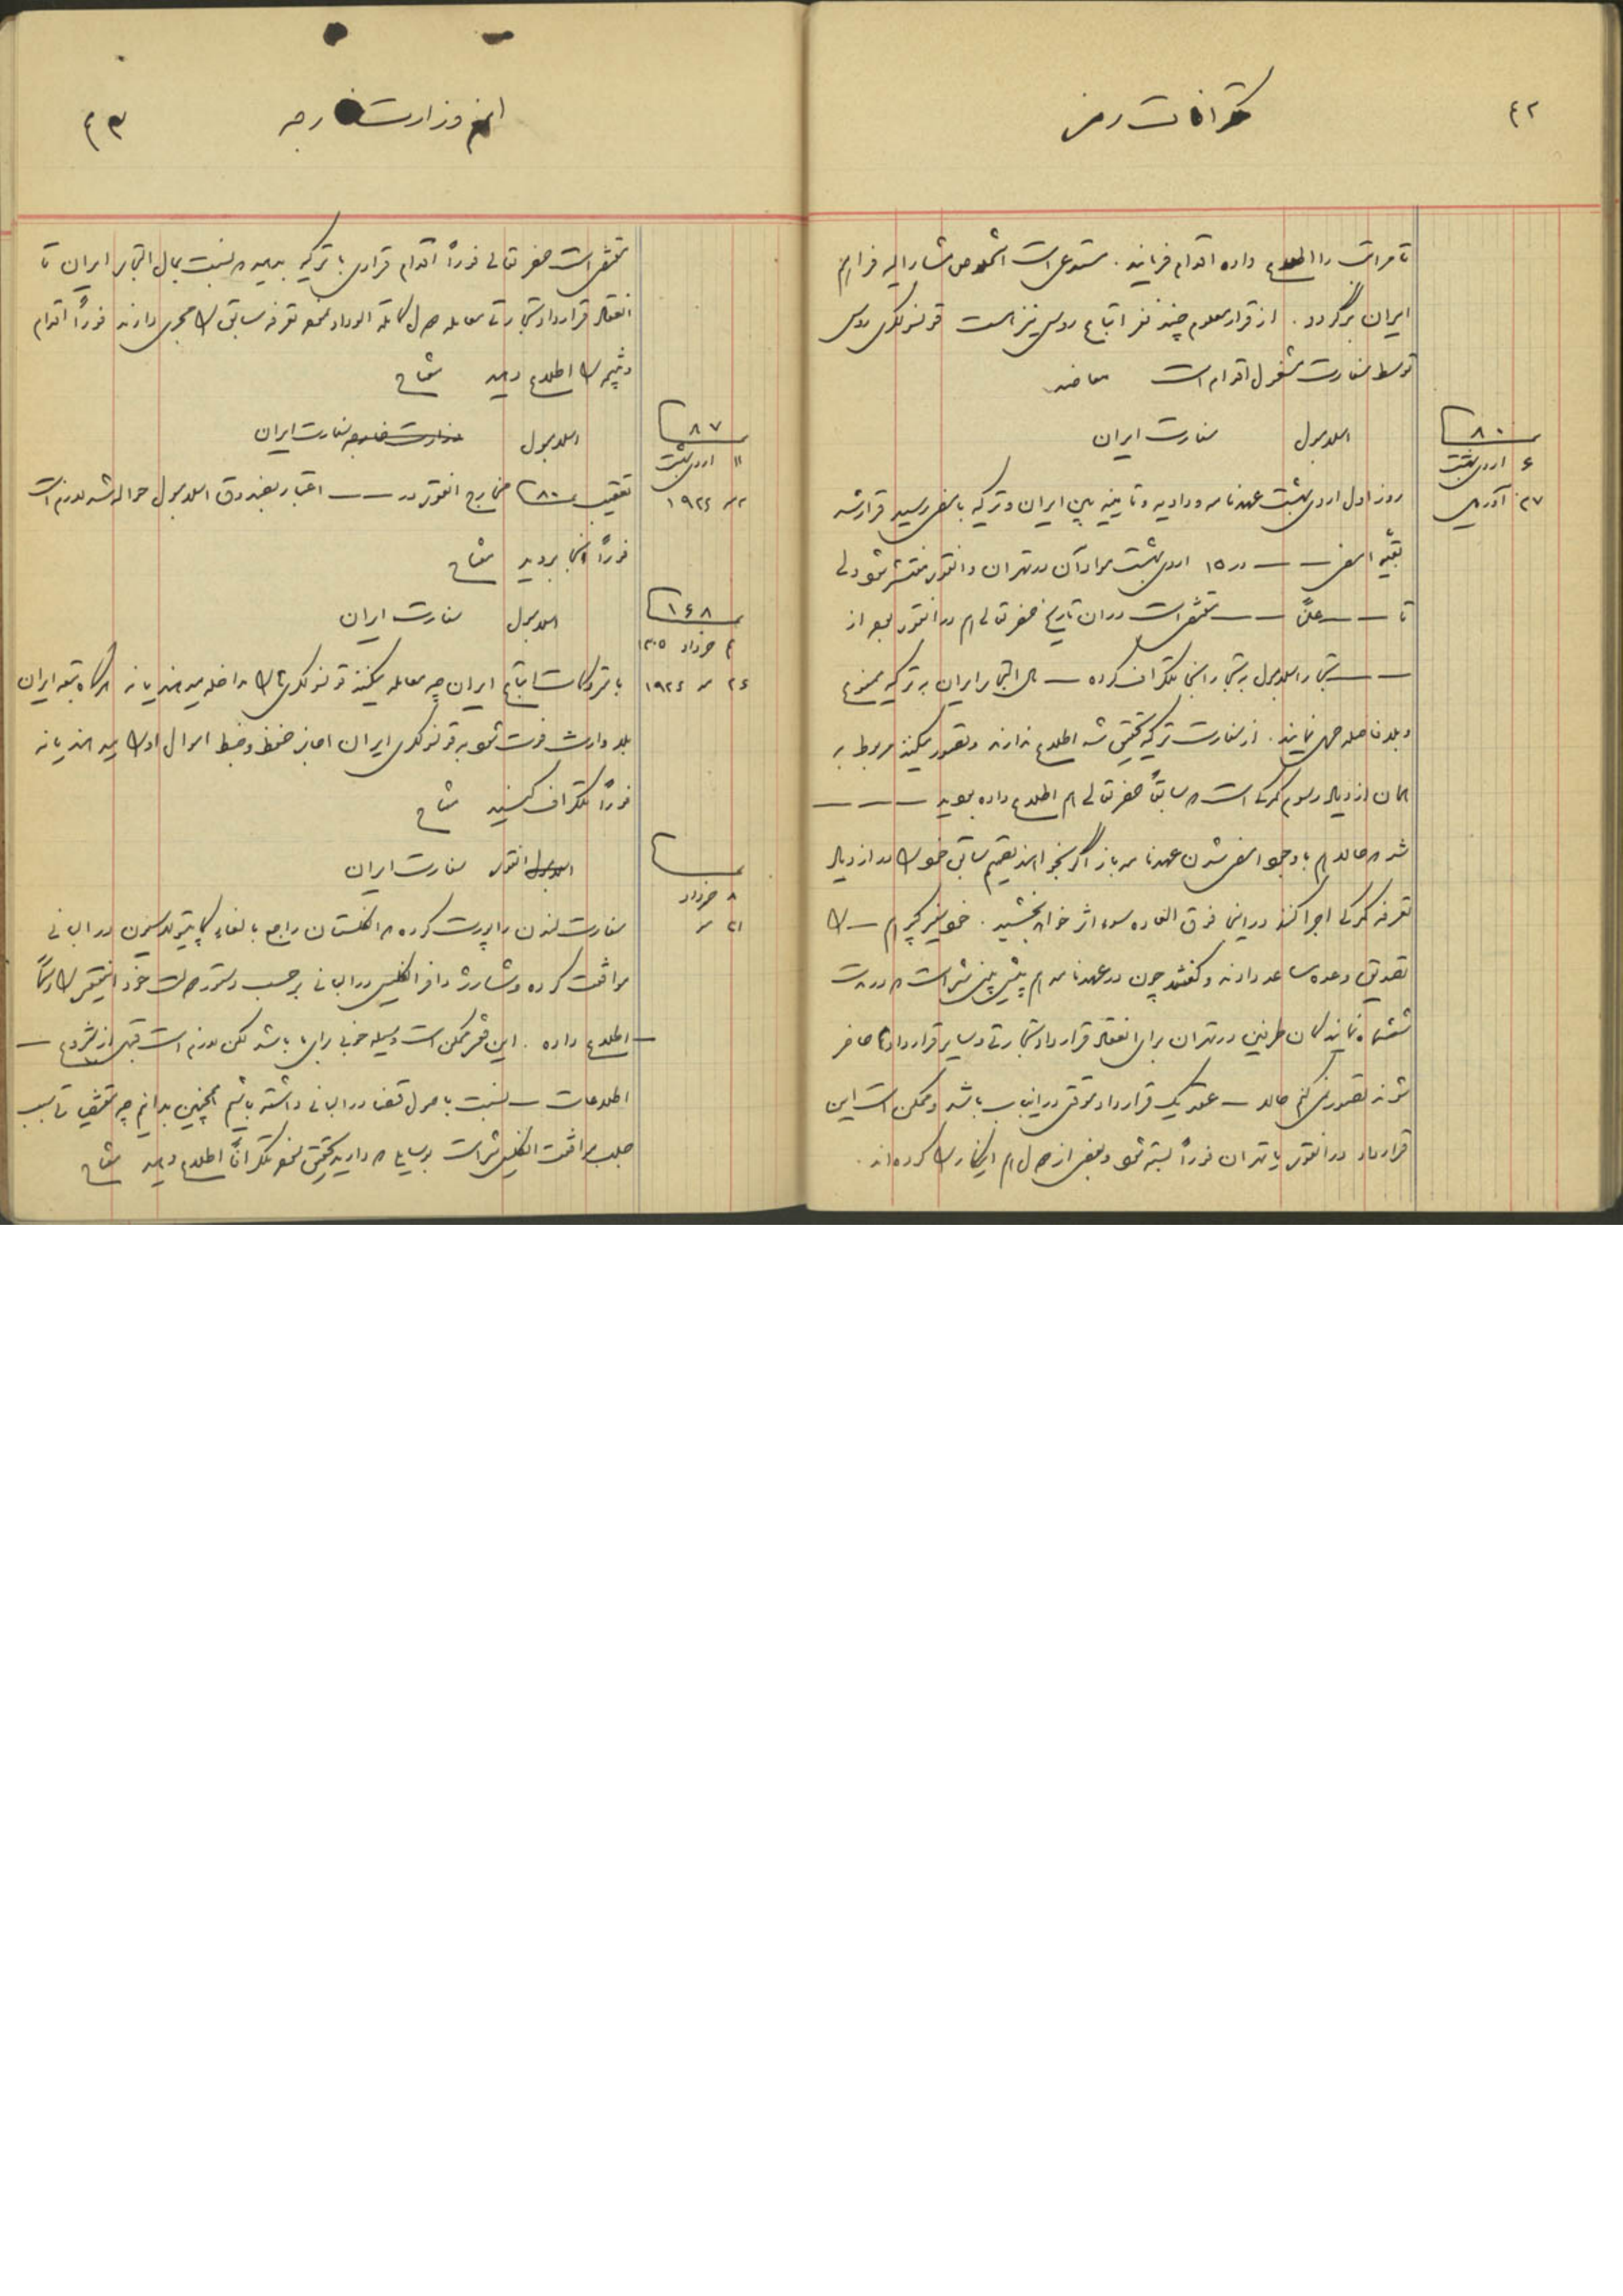 ۴۲
تلگرافات رمز
تا مراتب را اطلاع داده اقدام فرمایند . مستدعی است اشخاص مشارالیه فرا هم
ایران برگردد . از قرار معلوم چند نفر اتباع روس نیز است قونسولگری روس
توسط سفارت مشغول اقدام است معاضد
نمره ۸۰
۶ اردیبهشت
۲۷ آوریل
اسلامبول سفارت ایران
روز اول اردیبهشت عهدنامه ودادیه و تامینیه بین ایران و ترکیه بامضی رسید قرار شد
بقیه امضی — — در ۱۵ اردیبهشت مواد آن در طهران و انقوره منتشر شود ولی
تا — — علناً — — مقتضی است در آن تاریخ حضرتعالی هم در انقوره بعد از
— — تجار اسلامبول به تجار اینجا تلگراف کرده — مال التجاره ایران به ترکیه ممنوع
و بلافاصله حمل نمایند . از سفارت ترکیه تحقیق شد اطلاع ندارند و تصور میکنند مربوط به
همان ازدیاد رسوم گمرکی است که سابقاً حضرتعالی هم اطلاع داده بودید — — —
شد که حالا هم با وجود امضی شدن عهدنامه باز اگر بخواهند تصمیم سابق خود را در ازدیاد
تعرفه گمرکی اجرا کنند در اینجا فوق العاده سوء اثر خواهد بخشید . خود سفیر کبیر هم — را
تصدیق وعده مساعد دادند و گفتند چون در عهدنامه هم پیش بینی شده است که در مدت
ششماه نمایندگان طرفین در طهران برای انعقاد قرارداد تجارتی و سایر قراردادها حاضر
شوند تصور نمی کنم حالا — عقد یک قرارداد موقتی در اینباب باشد و ممکن است این
قرارداد در انقوره یا طهران فوراً بسته شود و بعضی از دول هم اینکار را کرده اند .
از وزارت خارجه
۴۳
مقتضی است حضرتعالی فوراً اقدام قراری با ترکیه بدهید که نسبت بمال التجاره ایران تا
انعقاد قرارداد تجارتی معامله دول کاملة الوداد نموده تعرفه سابق را مجری دارند فوراً اقدام
و نتیجه را اطلاع دهید مشاور
نمره ۸۷
۱۱ اردیبهشت
۲ مه ۱۹۲۶
اسلامبول وزارت خارجه سفارت ایران
تعقیب نمره ۸۰ مخارج انقوره در — — اعتبار بصندوق اسلامبول حواله شد لازم است
فوراً آنجا بروید مشاور
نمره ۱۶۸
۴ خرداد ۱۳۰۵
۲۶ مه ۱۹۲۶
اسلامبول سفارت ایران
با متروکات اتباع ایران چه معامله میکنند قونسولگری ما را مداخله میدهند یا نه هرگاه تبعه ایران
بلاوارث فوت شود به قونسولگری ایران اجازه حفظ و ضبط اموال او را میدهند یا نه
فوراً تلگراف کنید مشاور
نمره
۸ خرداد
۳۱ مه
اسلامبول انقوره سفارت ایران
سفارت لندن راپورت کرده که انگلستان راجع بالغاء کاپیتولاسیون در البانی
موافقت کرده و شارژ دافر انگلیس در البانی بر حسب دستور دولت خود اینمقصود را رسماً
— اطلاع داده . این فقره ممکن است وسیله خوبی برای ما باشد لکن لازم است قبل از شروع —
اطلاعات — نسبت باصول قضا در البانی داشته باشیم همچنین بدانیم چه مقتضیاتی سبب
جلب موافقت انگلیس شده است بوسایلی که دارید تحقیق نموده تلگرافاً اطلاع دهید مشاور